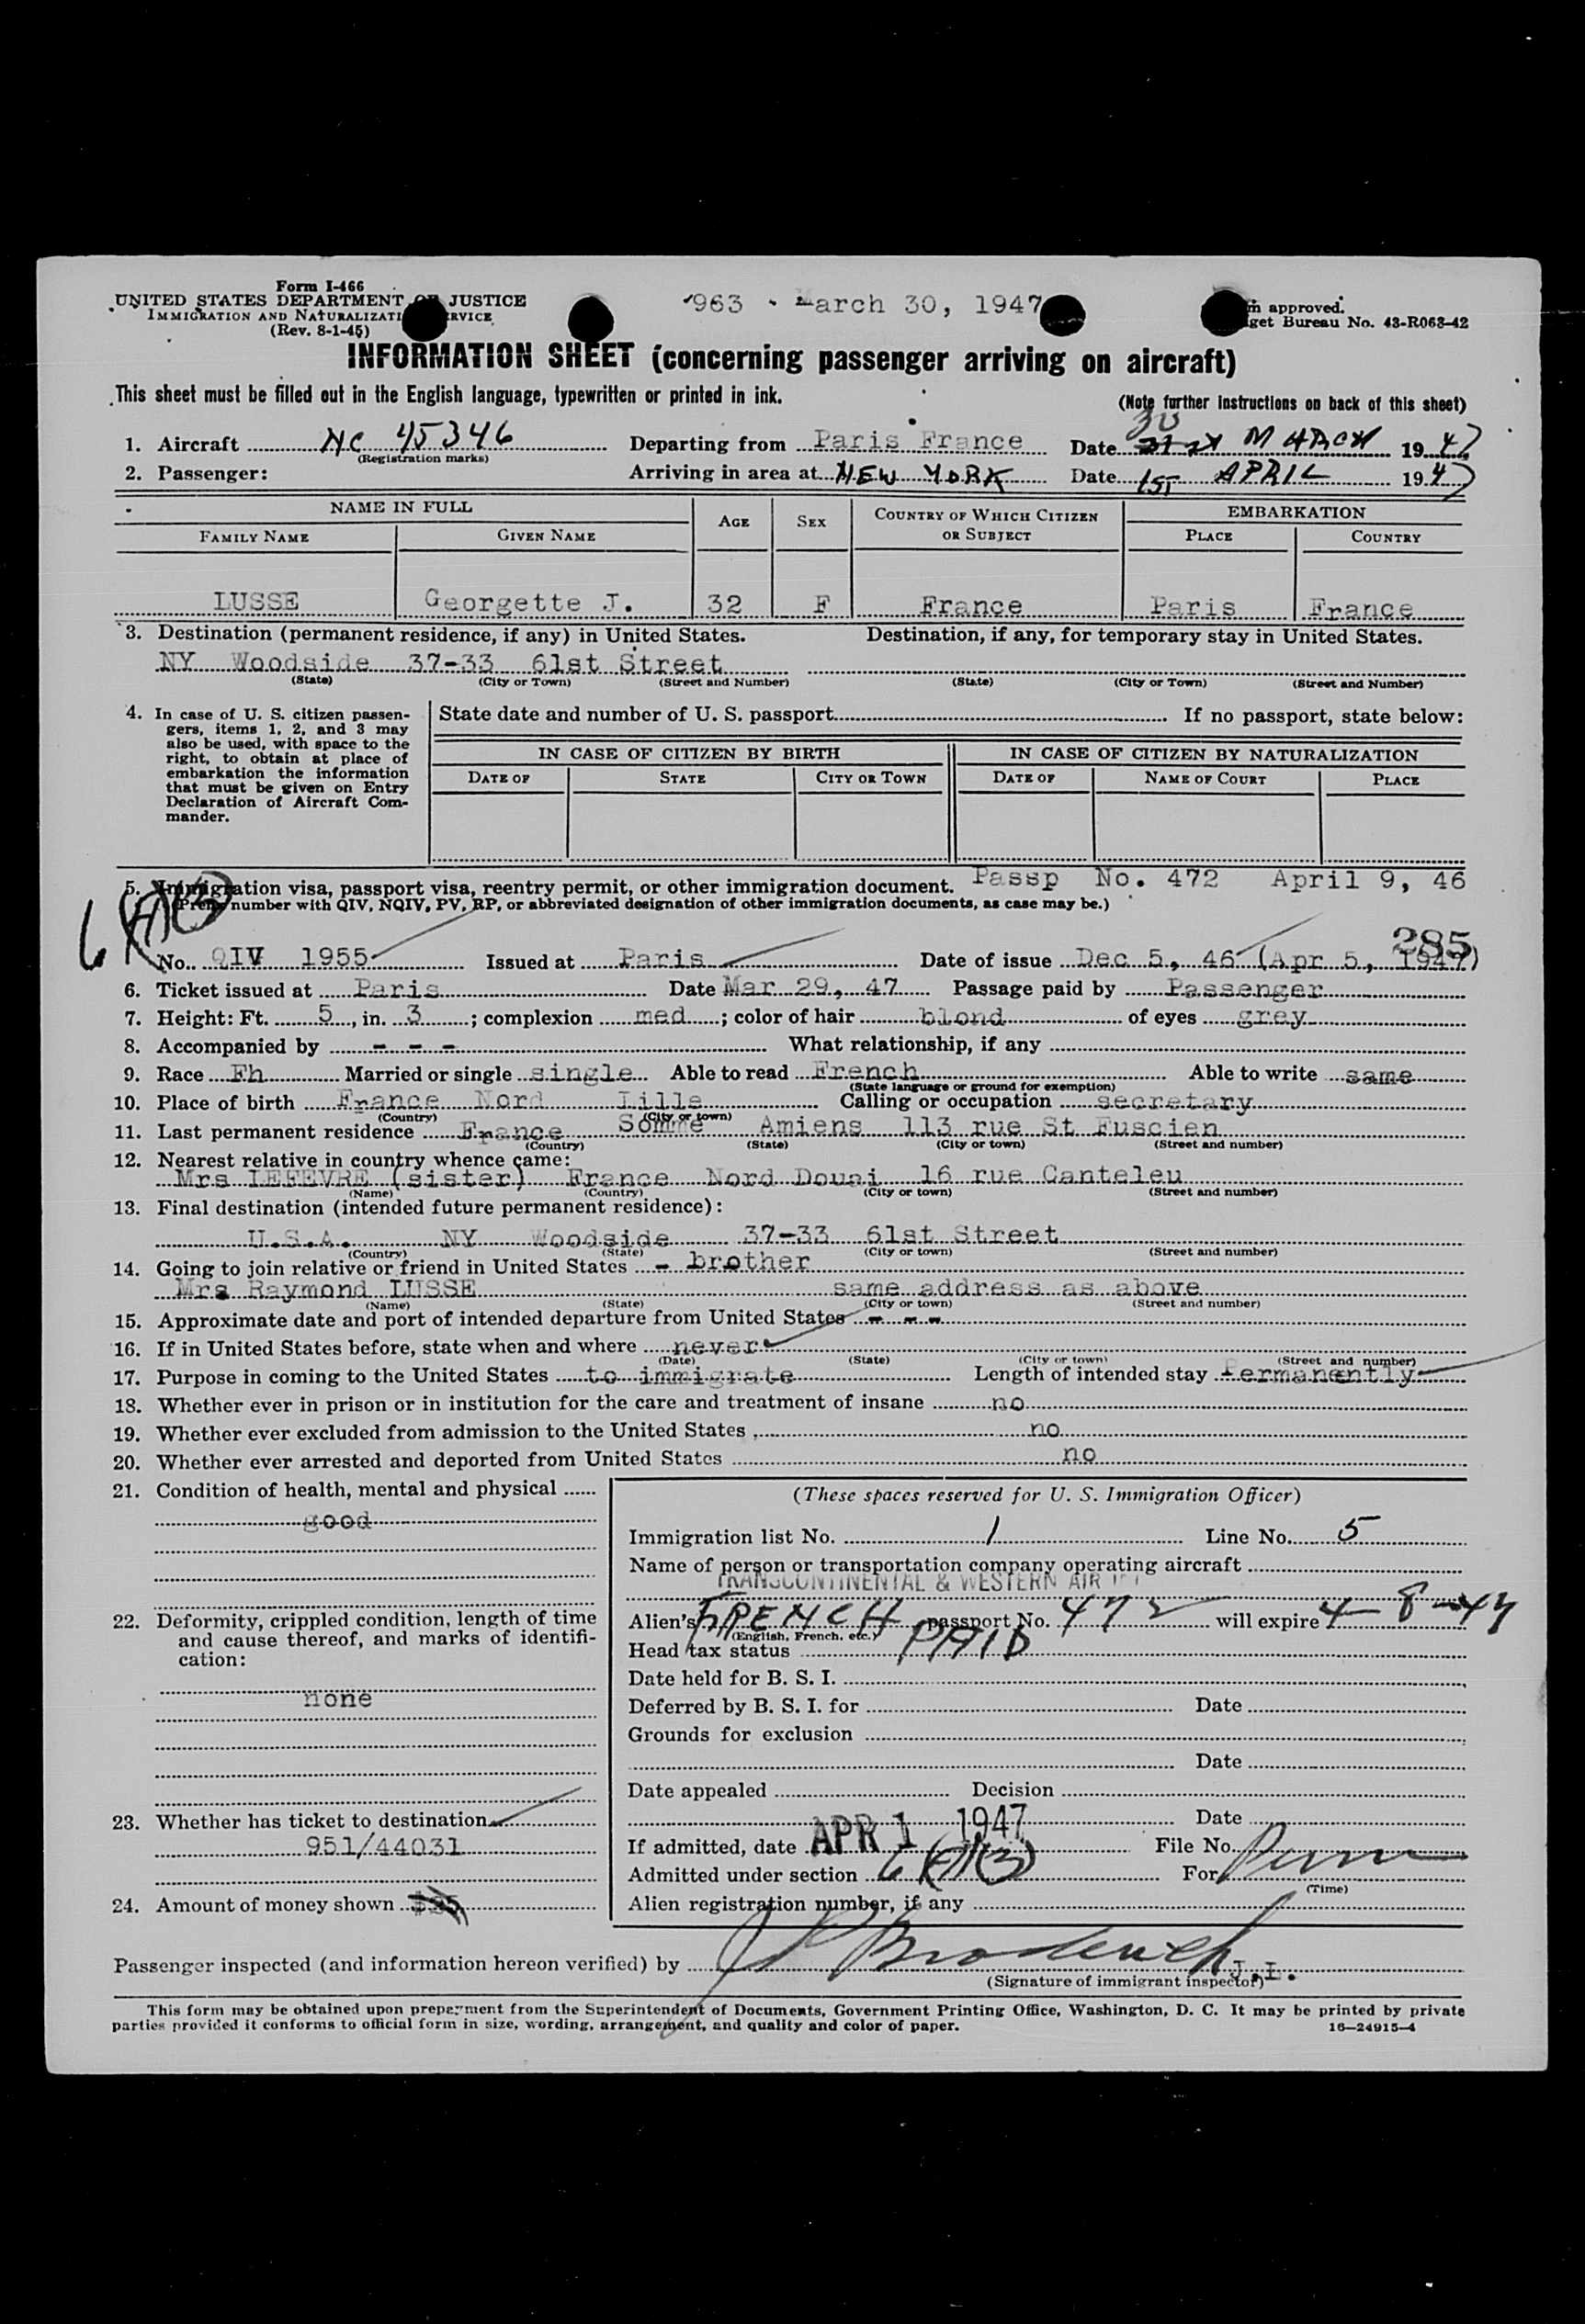 Form I-466
UNITED STATES DEPARTMENT OF JUSTICE
IMMIGRATION AND NATURALIZATI RVICE
(Rev. 8-1-45)
963 - March 30, 1947
m approved.
get Bureau No. 43-R063-42
INFORMATION SHEET (concerning passenger arriving on aircraft)
This sheet must be filled out in the English language, typewritten or printed in ink.
(Note further instructions on back of this sheet)
1. Aircraft NC 45346 Departing from Paris France Date 30 MARCH 1947
(Registration marks)
2. Passenger: Arriving in area at NEW YORK Date 1ST APRIL 1947
NAME IN FULL AGE SEX COUNTRY OF WHICH CITIZEN OR SUBJECT EMBARKATION
FAMILY NAME GIVEN NAME PLACE COUNTRY
LUSSE Georgette J. 32 F France Paris France
3. Destination (permanent residence, if any) in United States. Destination, if any, for temporary stay in United States.
NY Woodside 37-33 61st Street
(State) (City or Town) (Street and Number) (State) (City or Town) (Street and Number)
4. In case of U. S. citizen passen-
gers, items 1, 2, and 3 may
also be used, with space to the
right, to obtain at place of
embarkation the information
that must be given on Entry
Declaration of Aircraft Com-
mander.
State date and number of U. S. passport If no passport, state below:
IN CASE OF CITIZEN BY BIRTH IN CASE OF CITIZEN BY NATURALIZATION
DATE OF STATE CITY OR TOWN DATE OF NAME OF COURT PLACE
5. Immigration visa, passport visa, reentry permit, or other immigration document. Passp No. 472 April 9, 46
(Prefix number with QIV, NQIV, PV, RP, or abbreviated designation of other immigration documents, as case may be.)
285
No. QIV 1955 Issued at Paris Date of issue Dec 5, 46 (Apr 5, 1947)
6. Ticket issued at Paris Date Mar 29, 47 Passage paid by Passenger
7. Height: Ft. 5, in. 3; complexion med; color of hair blond of eyes grey
8. Accompanied by - - - What relationship, if any
9. Race Fh Married or single single Able to read French Able to write same
(State language or ground for exemption)
10. Place of birth France Nord Lille Calling or occupation secretary
(Country) (City or town)
11. Last permanent residence France Somme Amiens 113 rue St Fuscien
(Country) (State) (City or town) (Street and number)
12. Nearest relative in country whence came:
Mrs LEFEVRE (sister) France Nord Douai 16 rue Canteleu
(Name) (Country) (City or town) (Street and number)
13. Final destination (intended future permanent residence):
U.S.A. NY Woodside 37-33 61st Street
(Country) (State) (City or town) (Street and number)
14. Going to join relative or friend in United States - brother
Mrs Raymond LUSSE same address as above
(Name) (State) (City or town) (Street and number)
15. Approximate date and port of intended departure from United States - - -
16. If in United States before, state when and where never
(Date) (State) (City or town) (Street and number)
17. Purpose in coming to the United States to immigrate Length of intended stay Permanently
18. Whether ever in prison or in institution for the care and treatment of insane no
19. Whether ever excluded from admission to the United States no
20. Whether ever arrested and deported from United States no
21. Condition of health, mental and physical
good
22. Deformity, crippled condition, length of time
and cause thereof, and marks of identifi-
cation:
none
23. Whether has ticket to destination
951/44031
24. Amount of money shown $25
(These spaces reserved for U. S. Immigration Officer)
Immigration list No. 1 Line No. 5
Name of person or transportation company operating aircraft
TRANSCONTINENTAL & WESTERN AIR
Alien's FRENCH passport No. 472 will expire 4-8-47
(English, French, etc.)
Head tax status PAID
Date held for B. S. I.
Deferred by B. S. I. for Date
Grounds for exclusion
Date
Date appealed Decision
Date
If admitted, date APR 1 1947 File No.
Admitted under section 6(A)(3) For Perm
(Time)
Alien registration number, if any
Passenger inspected (and information hereon verified) by
J.L.
(Signature of immigrant inspector)
This form may be obtained upon prepayment from the Superintendent of Documents, Government Printing Office, Washington, D. C. It may be printed by private
parties provided it conforms to official form in size, wording, arrangement, and quality and color of paper. 16—24915-4